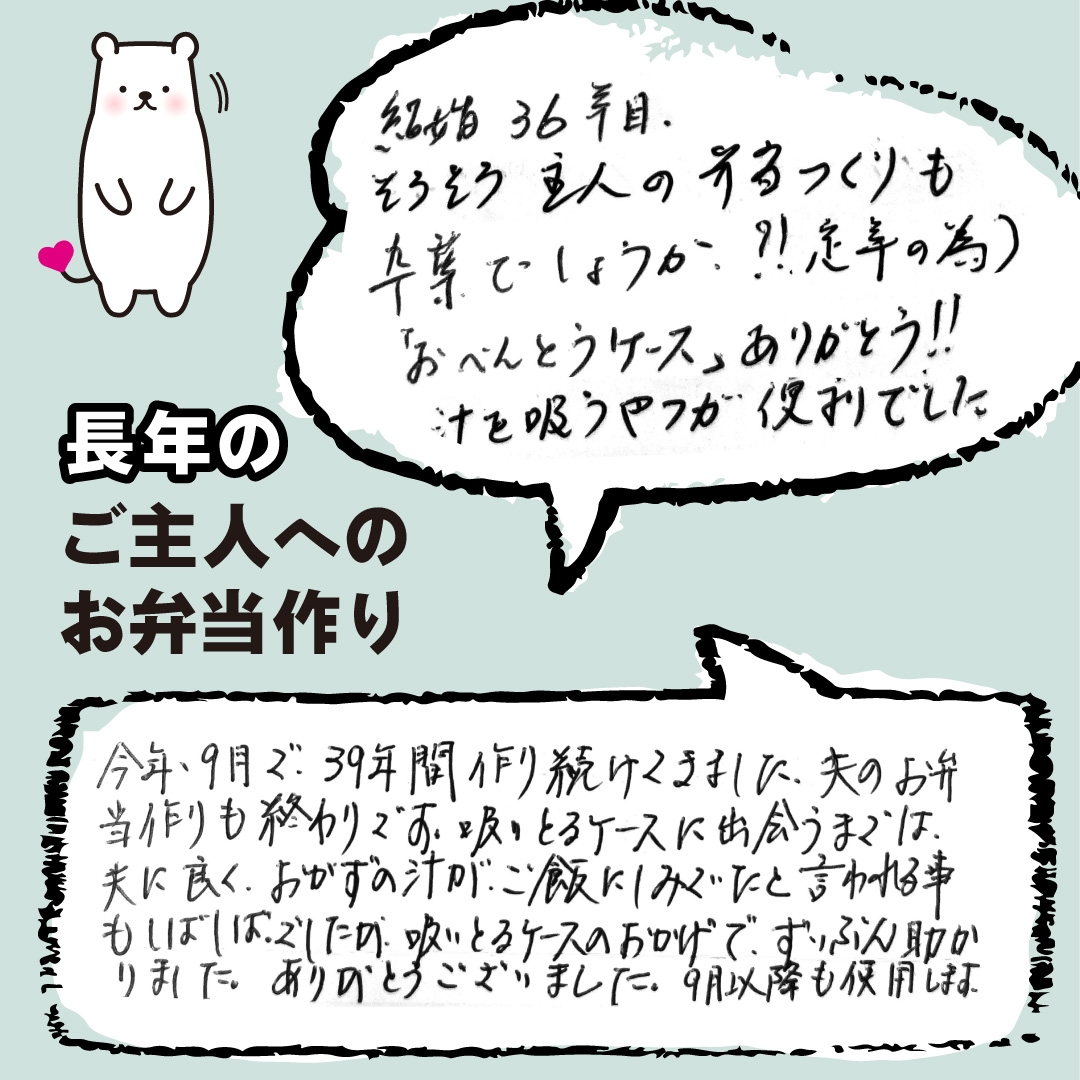 結婚 36年目.
そろそろ 主人の 弁当つくりも
卒業でしょうか. ?!! 定年の為)
「おべんとうケース」ありがとう!!
汁を吸うやつが 便利でした
長年の
ご主人への
お弁当作り
今年、9月で、39年間作り続けてきました、夫のお弁
当作りも終わりです。吸いとるケースに出会うまでは、
夫に良く、おかずの汁が、ご飯にしみでたと言われる事
もしばしば、でしたが、吸いとるケースのおかげで、ずいぶん助か
りました。ありがとうございました。9月以降も使用します。